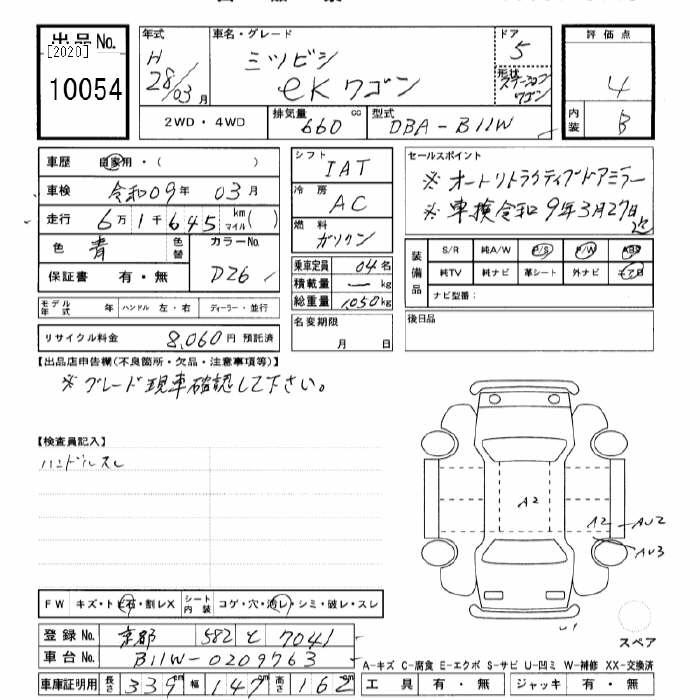 出品No.
[2020]
10054
年式
H
28/03月
車名・グレード
ミツビシ
eKワゴン
ドア
5
形状
ステーションワゴン
評価点
4
内装
B
2WD・4WD
排気量 660 cc
型式 DBA-B11W
車歴 自家用・( )
車検 令和09年 03月
走行 6万1千645 km マイル( )
色 青 色替
カラーNo.
D26
保証書 有・無
モデル年式 年 ハンドル 左・右 ディーラー・並行
リサイクル料金 8,060円 預託済
シフト
IAT
冷房
AC
燃料
ガソリン
乗車定員 04名
積載量 ー kg
総重量 1,050 kg
名変期限
月 日
セールスポイント
※オートリトラクティブドアミラー
※車検令和9年3月27日迄
装備品
S/R 純A/W P/S P/W ABS
純TV 純ナビ 革シート 外ナビ エアB
ナビ型番:
後日品
【出品店申告欄(不良箇所・欠品・注意事項等)】
※グレード現車確認して下さい。
【検査員記入】
ハンドルスレ
A2
A2
AU2
AU3
U1
スペア
FW キズ・トビ石・割レX
シート内装 コゲ・穴・汚レ・シミ・破レ・スレ
登録No. 京都 582 と 7041
車台No. B11W-0209763
車庫証明用 長さ 339 幅 147 高さ 162
A-キズ C-腐食 E-エクボ S-サビ U-凹ミ W-補修 XX-交換済
工具 有・無 ジャッキ 有・無